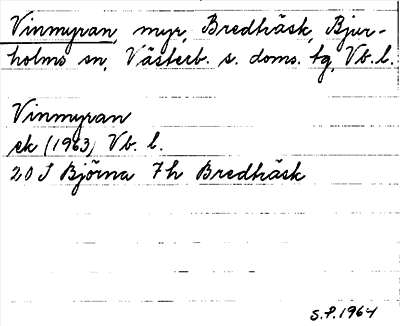 Vinmyran, myr, Bredträsk, Bjur-
holms sn, Västerb. s. doms. tg, Vb. l.
Vinmyran
ek (1963) Vb. l.
20 J Björna 7h Bredträsk
S.P. 1964